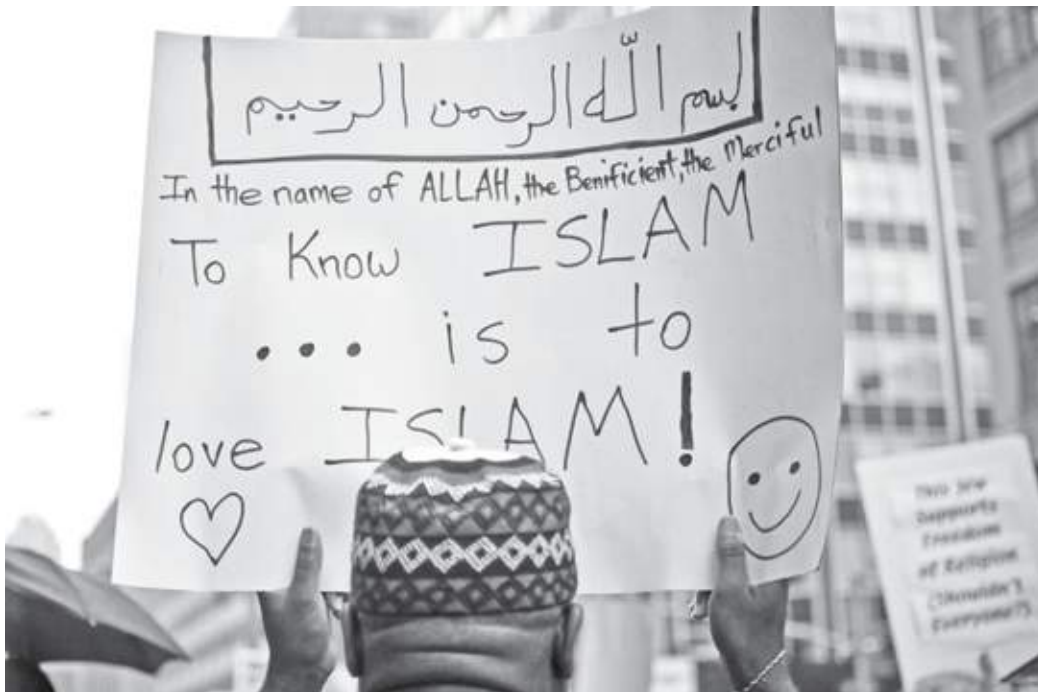 بسم اللّه الرحمن الرحيم
In the name of ALLAH, the Benificient, the Merciful
To Know ISLAM
... is to
love ISLAM!
This Jew
Supports
Freedom
of Religion
(Shouldn't
Everyone?)